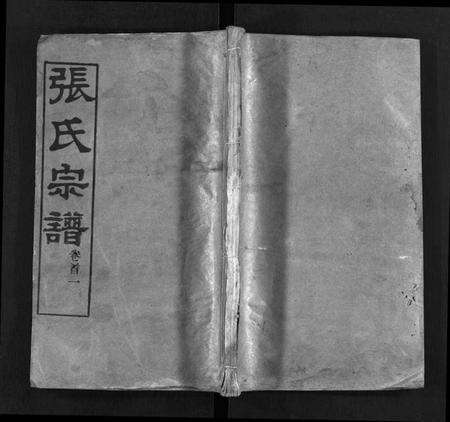 張氏宗譜
卷首一